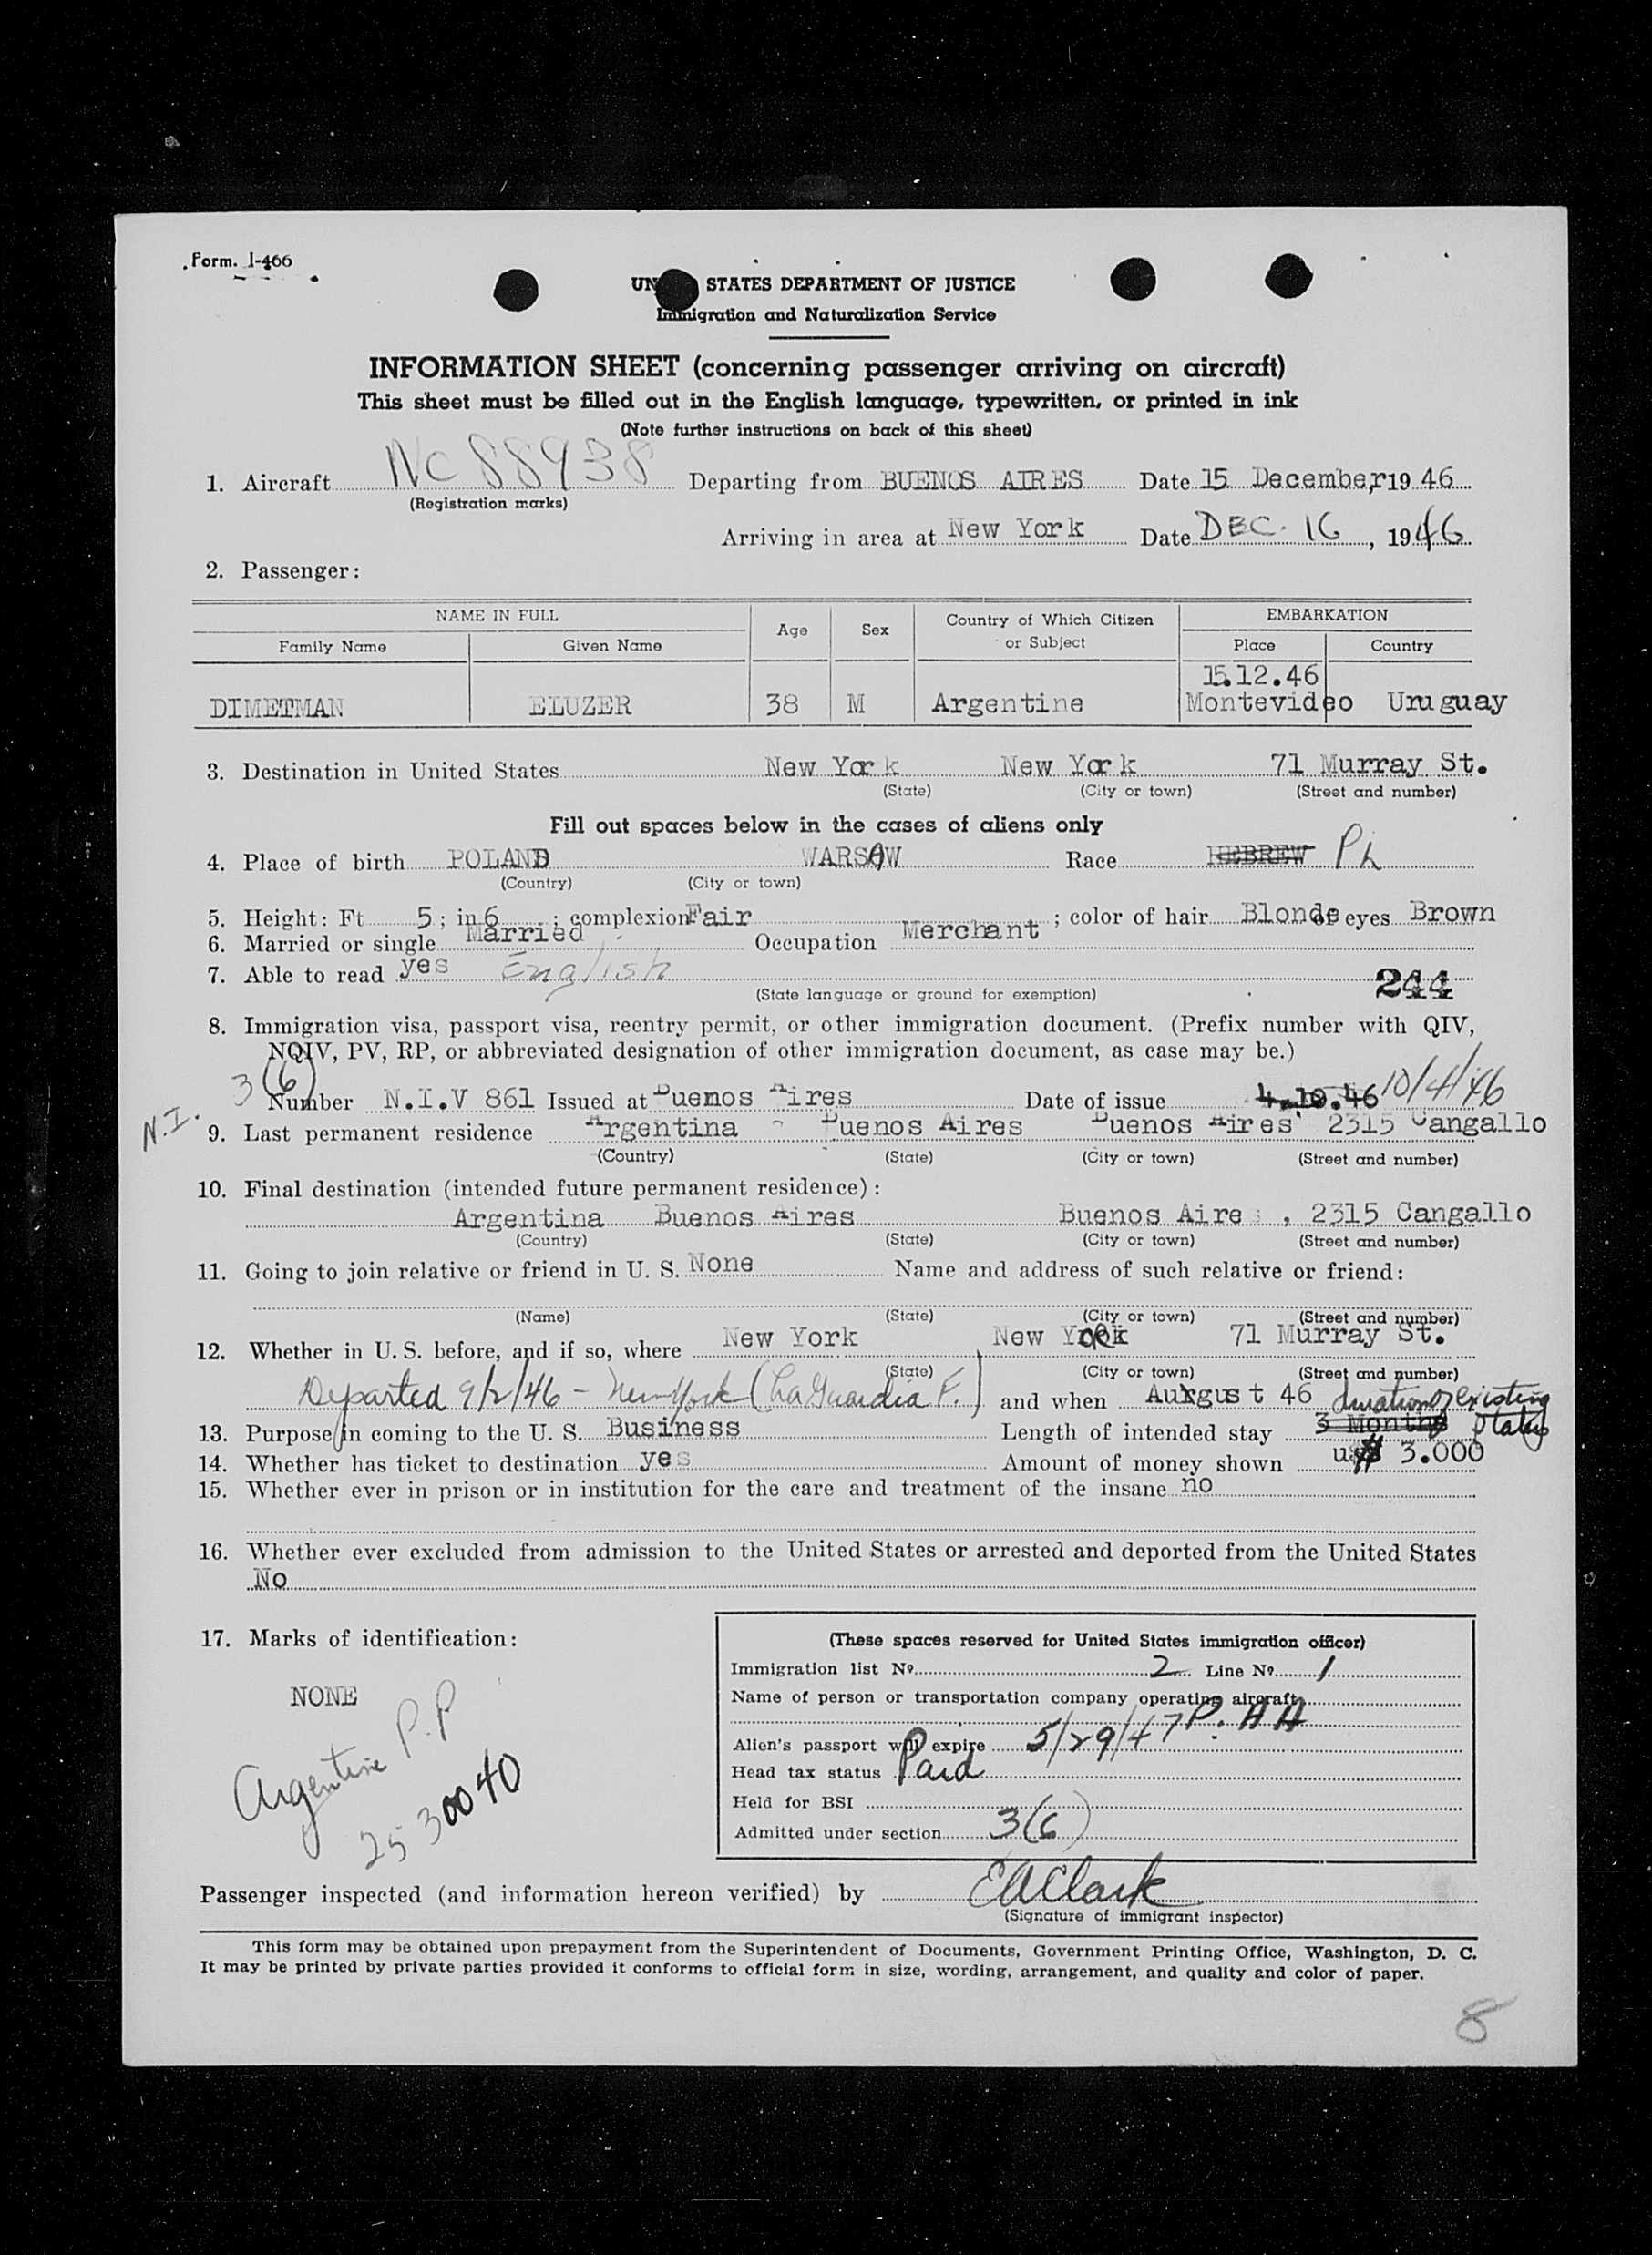 Form. I-466
UN STATES DEPARTMENT OF JUSTICE
Immigration and Naturalization Service
INFORMATION SHEET (concerning passenger arriving on aircraft)
This sheet must be filled out in the English language, typewritten, or printed in ink
(Note further instructions on back of this sheet)
1. Aircraft NC 88938 Departing from BUENOS AIRES Date 15 December, 19 46
(Registration marks)
Arriving in area at New York Date DEC. 16, 1946
2. Passenger:
NAME IN FULL Age Sex Country of Which Citizen or Subject EMBARKATION
Family Name Given Name Place Country
15.12.46
DIMETMAN ELUZER 38 M Argentine Montevideo Uruguay
3. Destination in United States New York New York 71 Murray St.
(State) (City or town) (Street and number)
Fill out spaces below in the cases of aliens only
4. Place of birth POLAND WARSAW Race HEBREW
(Country) (City or town)
5. Height: Ft 5; in 6; complexion Fair; color of hair Blonde eyes Brown
6. Married or single Married Occupation Merchant
7. Able to read yes English
(State language or ground for exemption) 244
8. Immigration visa, passport visa, reentry permit, or other immigration document. (Prefix number with QIV,
NQIV, PV, RP, or abbreviated designation of other immigration document, as case may be.)
3(6)
Number N.I.V 861 Issued at Buenos Aires Date of issue 4.10.46 10/4/46
N.I. 9. Last permanent residence Argentina - Buenos Aires Buenos Aires 2315 Cangallo
(Country) (State) (City or town) (Street and number)
10. Final destination (intended future permanent residence):
Argentina Buenos Aires Buenos Aires, 2315 Cangallo
(Country) (State) (City or town) (Street and number)
11. Going to join relative or friend in U. S. None Name and address of such relative or friend:
(Name) (State) (City or town) (Street and number)
12. Whether in U. S. before, and if so, where New York New York 71 Murray St.
(State) (City or town) (Street and number)
Departed 9/2/46 - New York (La Guardia F.) and when August 46 duration of existing
13. Purpose in coming to the U. S. Business Length of intended stay 3 Months status
14. Whether has ticket to destination yes Amount of money shown u$ 3.000
15. Whether ever in prison or in institution for the care and treatment of the insane no
16. Whether ever excluded from admission to the United States or arrested and deported from the United States
No
17. Marks of identification:
NONE
Argentine P.P
2530040
(These spaces reserved for United States immigration officer)
Immigration list No. 2 Line No. 1
Name of person or transportation company operating aircraft
P. A A
Alien's passport will expire 5/29/47
Head tax status Paid
Held for BSI
Admitted under section 3(6)
Passenger inspected (and information hereon verified) by E A Clark
(Signature of immigrant inspector)
This form may be obtained upon prepayment from the Superintendent of Documents, Government Printing Office, Washington, D. C.
It may be printed by private parties provided it conforms to official form in size, wording, arrangement, and quality and color of paper.
8